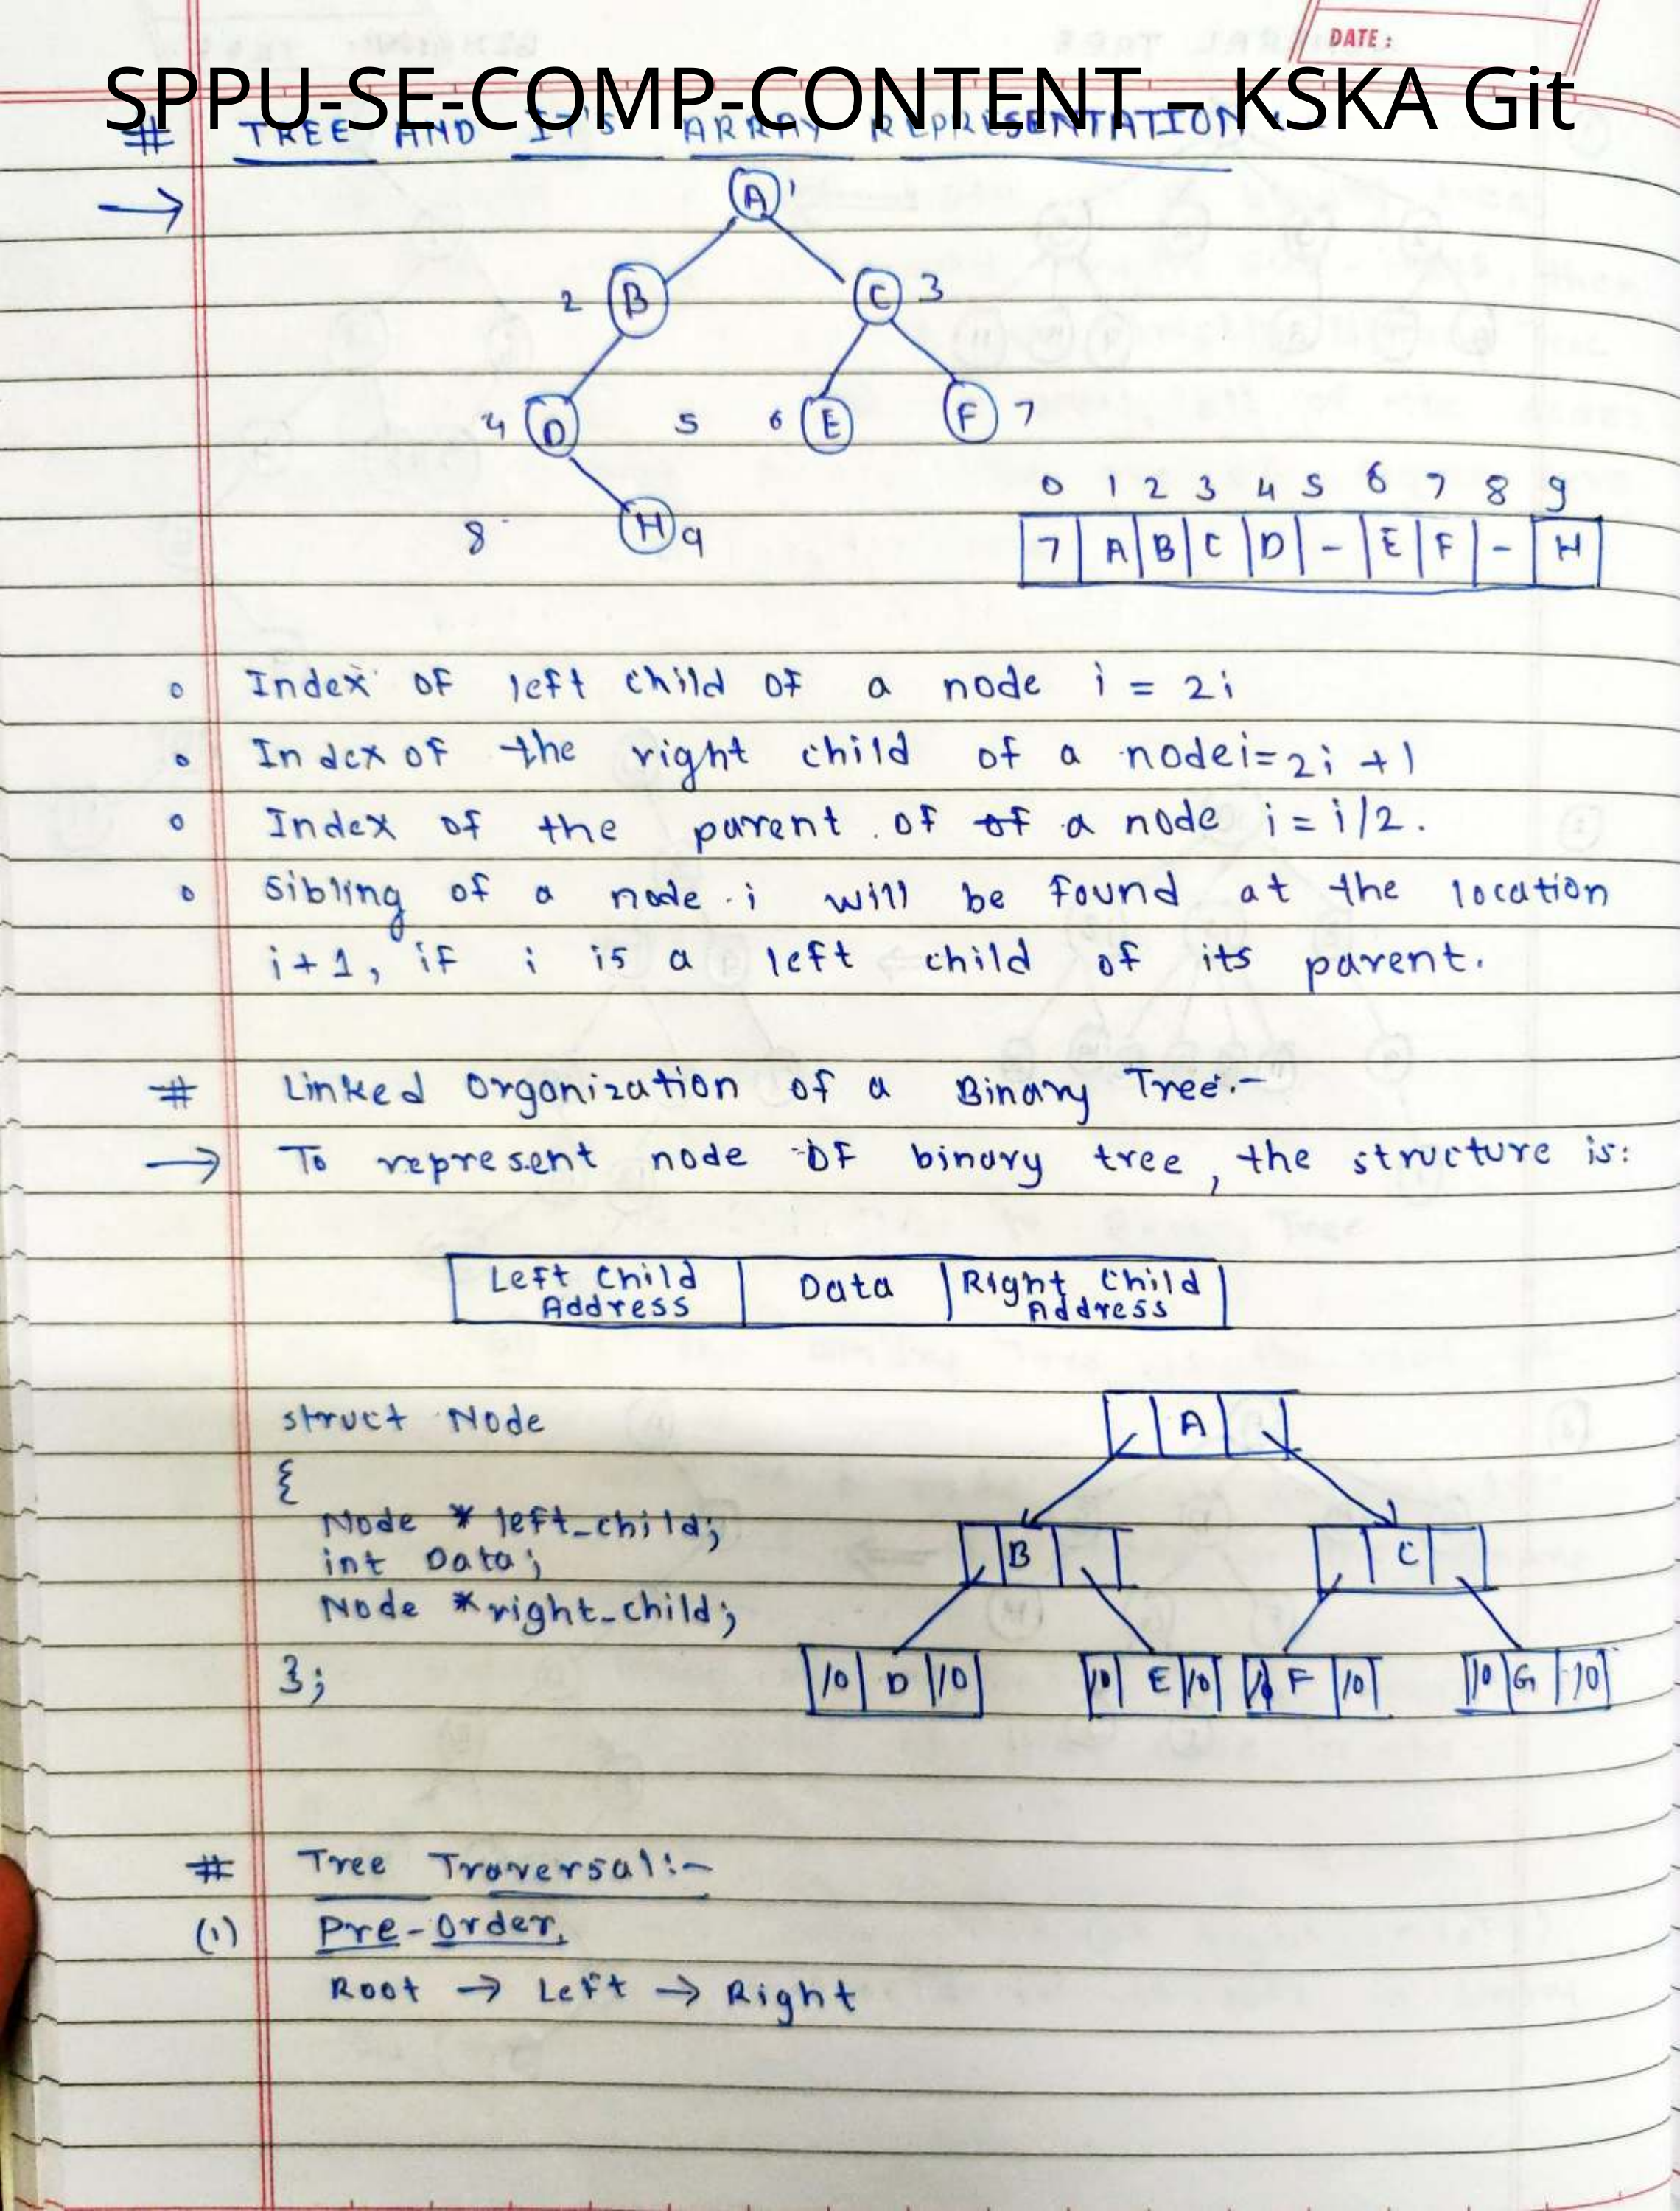 DATE :
SPPU-SE-COMP-CONTENT – KSKA Git
# TREE AND IT'S ARRAY REPRESENTATION :-
→
A 1
2 B C 3
4 D 5 6 E F 7
8 H 9
0 1 2 3 4 5 6 7 8 9
7 A B C D - E F - H
o Index of left child of a node i = 2i
o Index of the right child of a node i = 2i + 1
o Index of the parent of of a node i = i/2.
o Sibling of a node i will be found at the location
i+1, if i is a left child of its parent.
# Linked Organization of a Binary Tree:-
→ To represent node of binary tree, the structure is:
Left Child Address Data Right Child Address
struct Node
{
Node * left_child;
int Data;
Node *right_child;
};
A
B C
10 D 10 10 E 10 F 10 10 G 10
# Tree Traversal:-
(1) Pre-Order,
Root → Left → Right